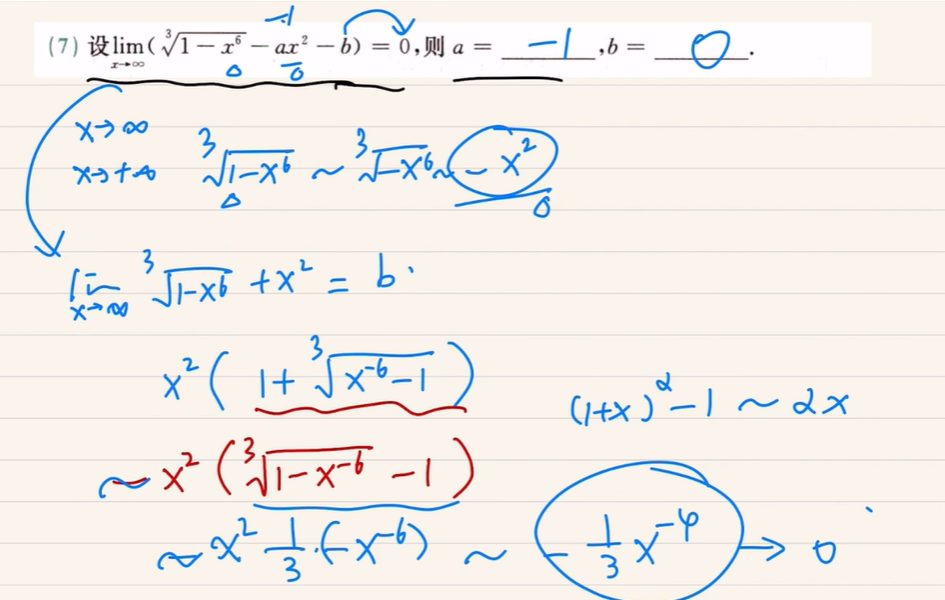 -1
(7) 设lim(∛(1-x⁶)-ax²-b)=0,则 a= -1 ,b= 0 .
x→∞
x→∞
x→+∞ ∛(1-x⁶) ~ ∛(-x⁶) ~ -x²
lim ∛(1-x⁶) +x² = b.
x→∞
x²(1+∛(x⁻⁶-1))
(1+x)^α-1 ~ αx
~ x²(∛(1-x⁻⁶) -1)
~ x² 1/3·(-x⁻⁶) ~ -1/3 x⁻⁴ → 0